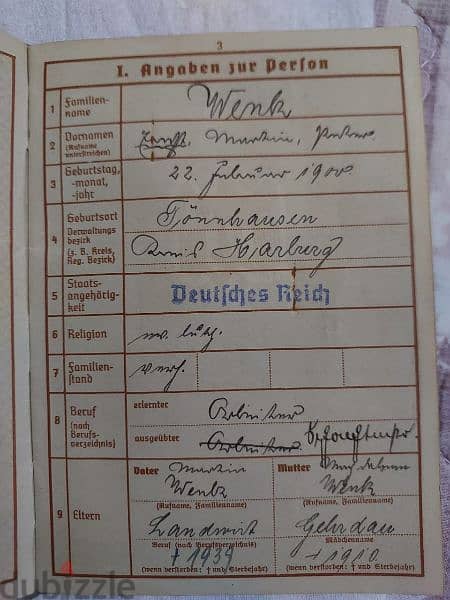 3
I. Angaben zur Person
1 Familien-
name
Wenk
2 Vornamen
(Rufname
unterstreichen)
Ernst, Martin, Peter
3 Geburtstag,
-monat,
-jahr
22. Februar 1900
4 Geburtsort
Verwaltungs
bezirk
(z. B. Kreis,
Reg. Bezirk)
Tönnhausen
Kreis Harburg
5 Staats-
angehörig-
keit
Deutsches Reich
6 Religion
ev. luth.
7 Familien-
stand
verh.
8 Beruf
(nach
Berufs-
verzeichnis)
erlernter
Arbeiter
ausgeübter
Arbeiter
9 Eltern
Vater
Martin
Wenk
(Rufname, Familienname)
Landwirt
Beruf (nach Berufsverzeichnis)
† 1939
(wenn verstorben: † und Sterbejahr)
Mutter
Wenk
(Rufname, Familienname)
Gehrdau
(Mädchenname)
† 1910
(wenn verstorben: † und Sterbejahr)
dubizzle